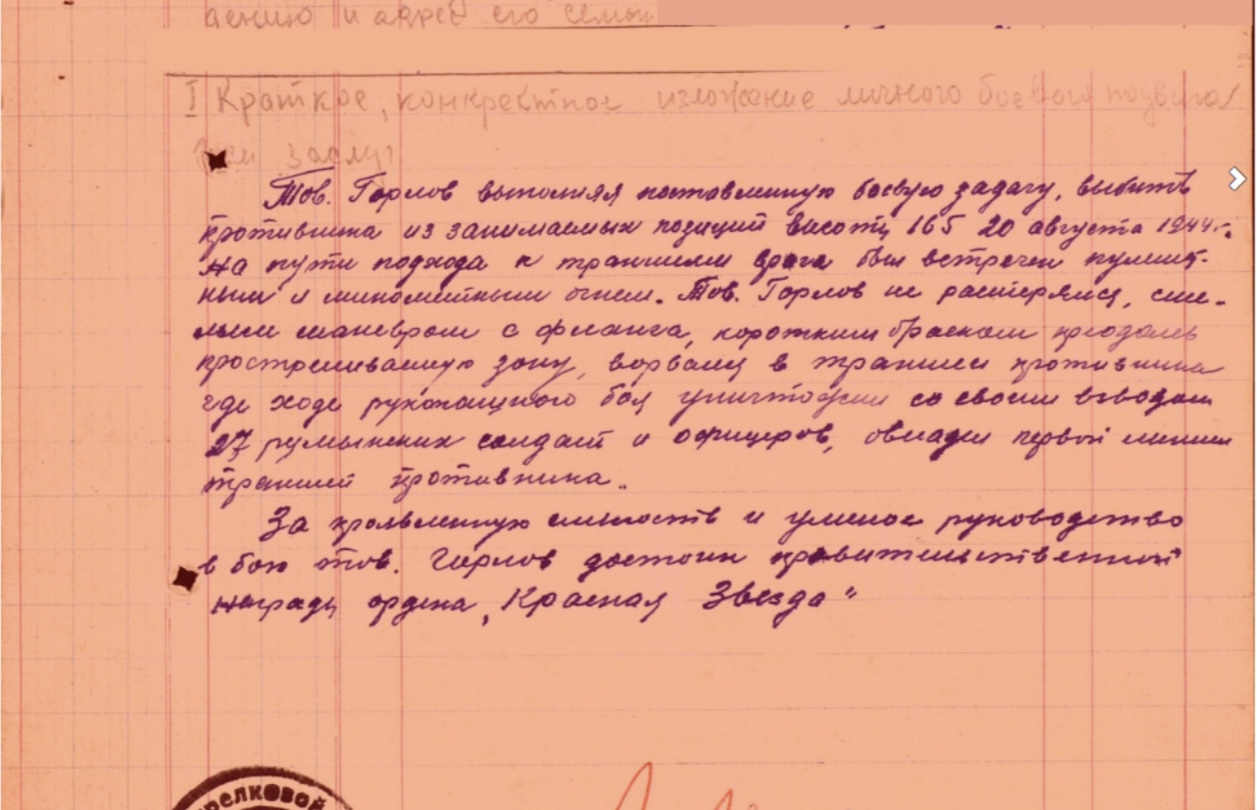 дению и адрес его семьи
I Краткое, конкретное изложение личного боевого подвига
или заслуг
Тов. Горлов выполняя поставленную боевую задачу, выбить
противника из занимаемых позиций высоты 165 20 августа 1944 г.
На пути подхода к траншеям врага был встречен пулемёт-
ным и миномётным огнем. Тов. Горлов не растерялся, сме-
лым маневром с фланга, коротким броском преодолев
простреливаемую зону, ворвался в траншеи противника
где ходе рукопашного боя уничтожил со своим взводом
27 румынских солдат и офицеров, овладел первой линией
траншей противника.
За проявленную смелость и умелое руководство
в бою тов. Горлов достоин правительственной
награды ордена „Красная Звезда“
релковой